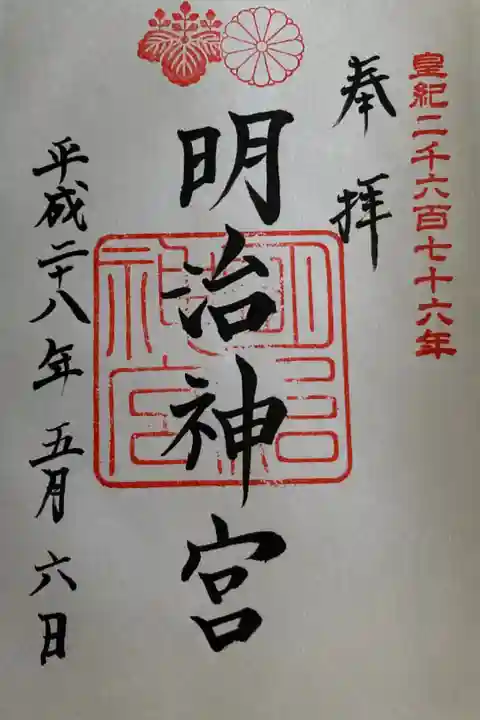 皇紀二千六百七十六年
奉拝
明治神宮
明治神宮
平成二十八年五月六日